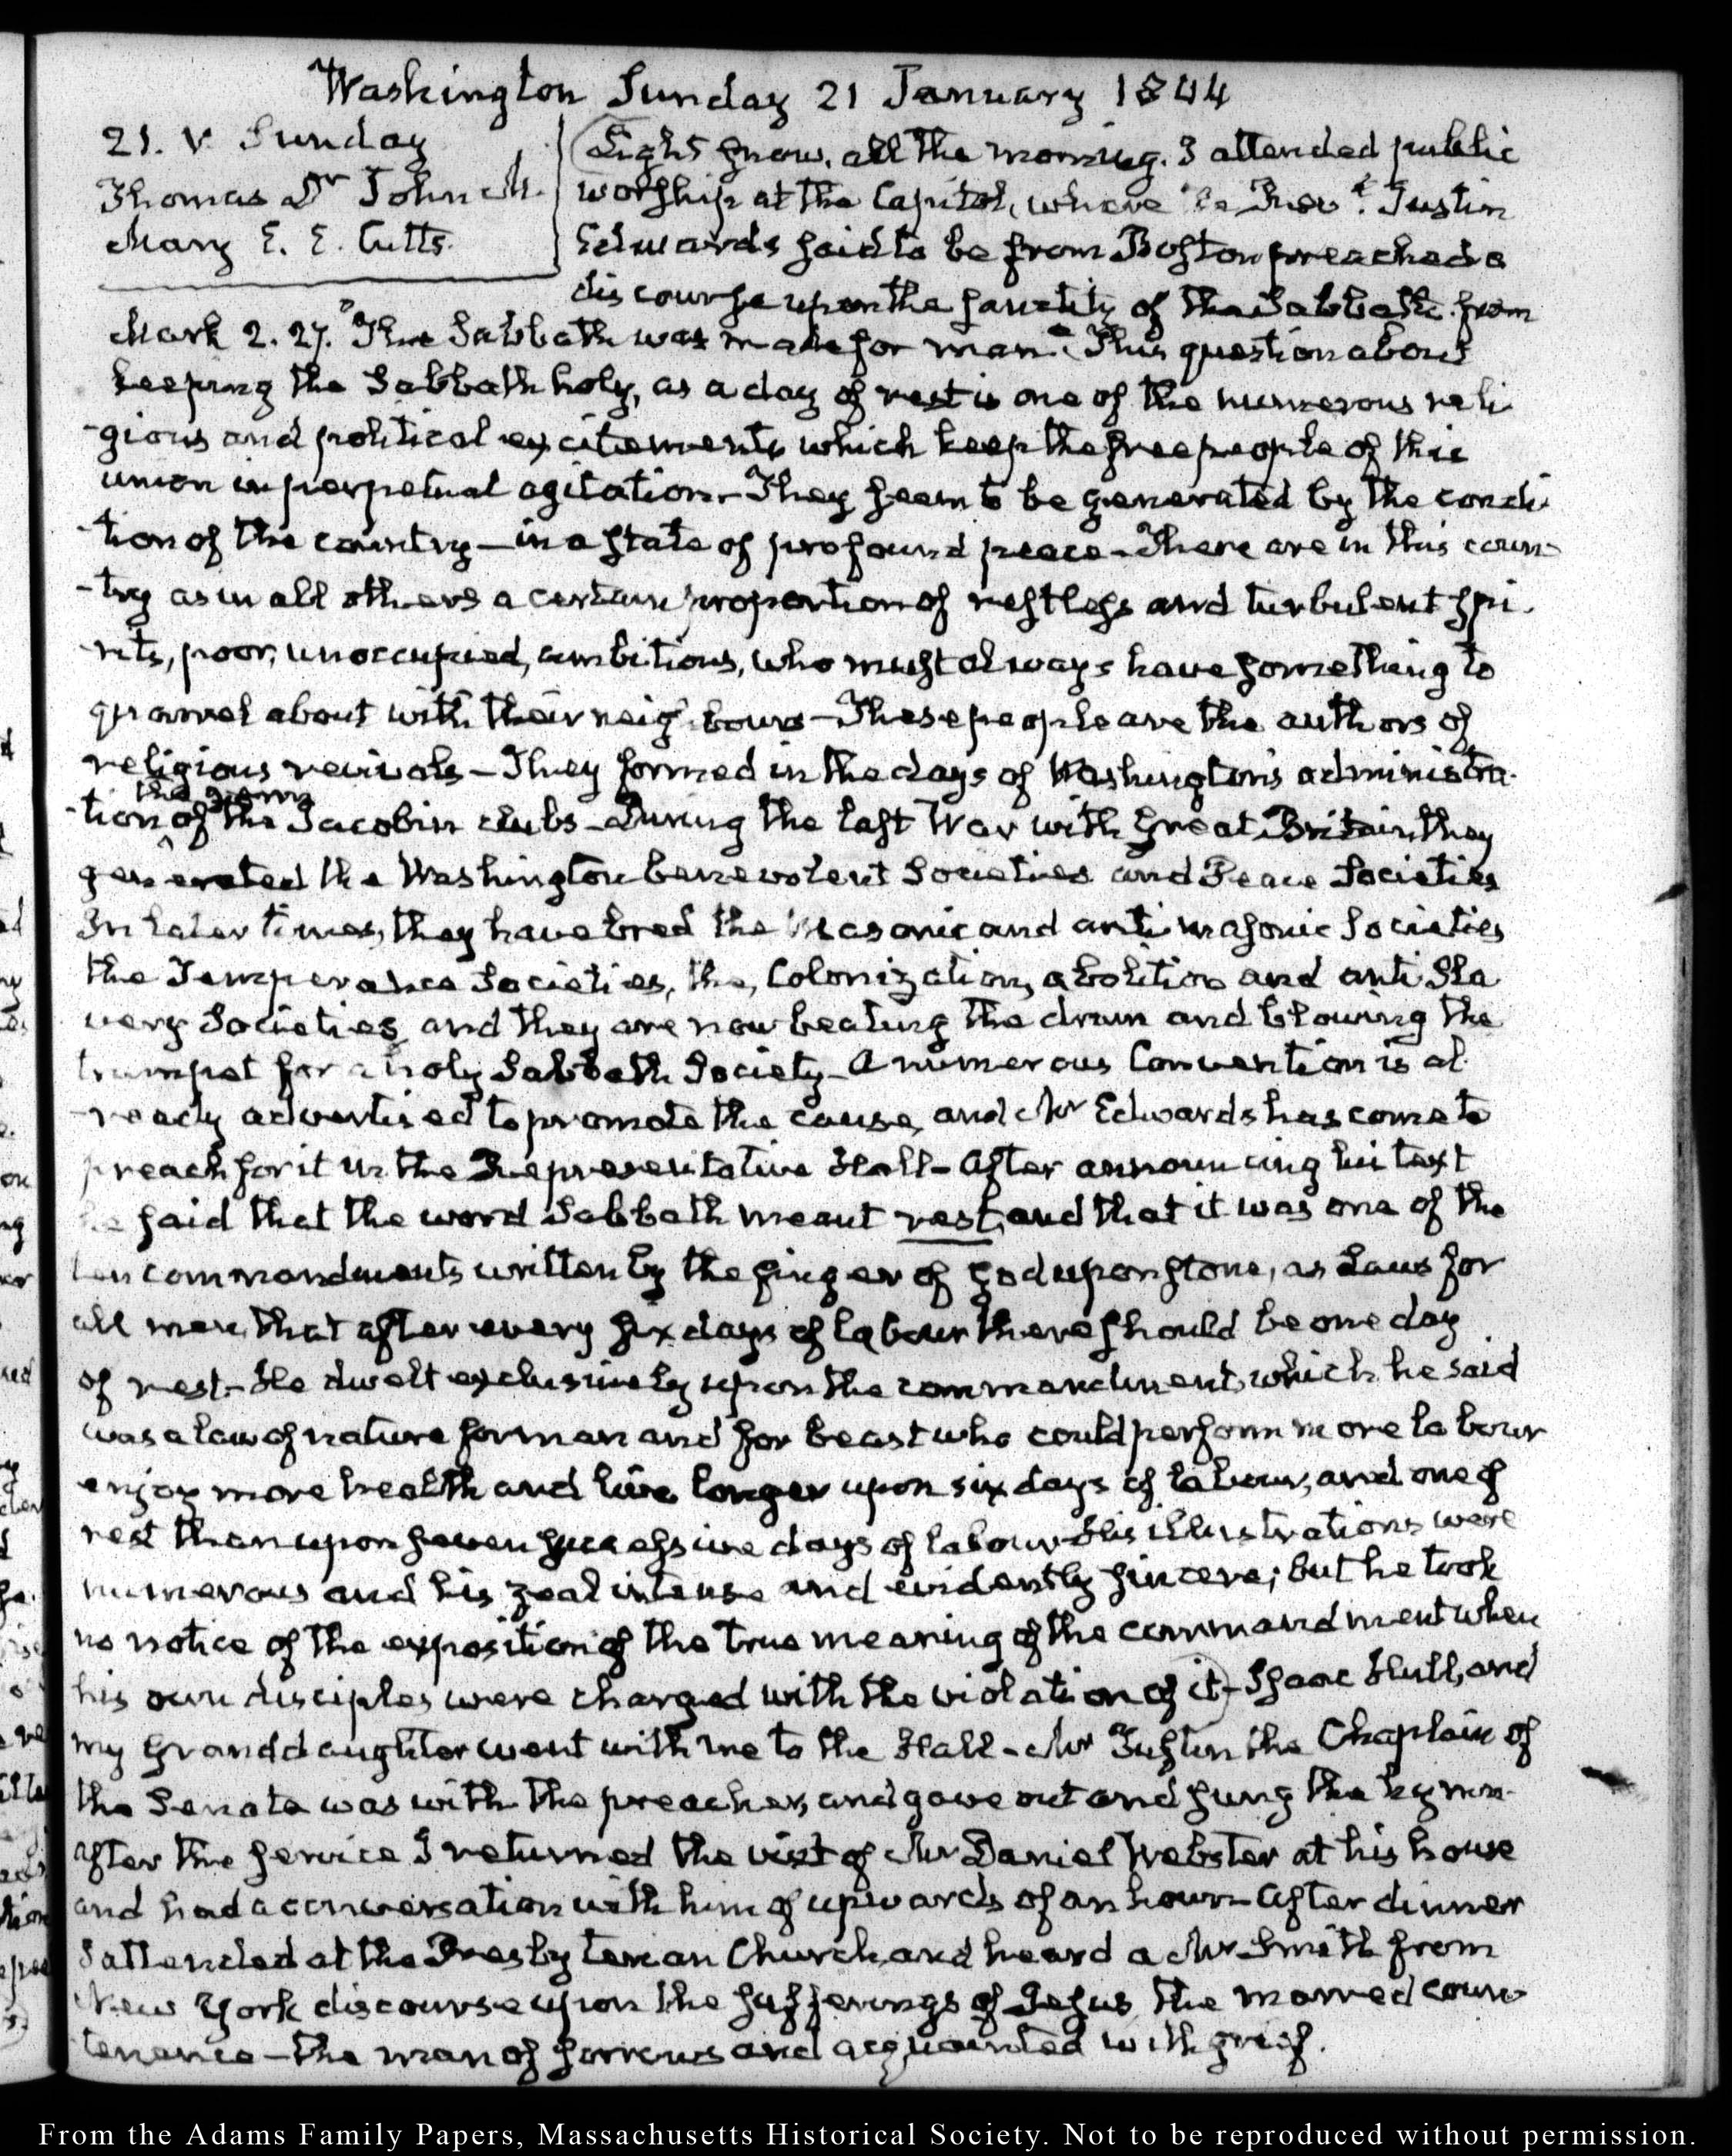 Washington Sunday 21 January 1844
21. V. Sunday
Thomas Dr John M.
Mary E. E. Cutts.
Light snow, all the morning. I attended public
worship at the Capitol, where the Revd. Justin
Edwards said to be from Boston preached a
discourse upon the sanctity of the Sabbath. from
Mark 2. 27. "The Sabbath was made for man." This question about
keeping the Sabbath holy, as a day of rest is one of the numerous reli-
-gious and political excitements which keep the free people of this
union in perpetual agitation - They seem to be generated by the condi-
-tion of the country — in a state of profound peace - There are in this coun-
-try as in all others a certain proportion of restless and turbulent spi-
-rits, poor, unoccupied, ambitious, who must always have something to
quarrel about with their neighbours - These people are the authors of
religious revivals - They formed in the days of Washington's administra-
the germ
-tion of the Jacobin clubs - During the last War with Great Britain, they
generated the Washington benevolent Societies and Peace Societies
In later times, they have bred the Masonic and anti masonic Societies
the Temperance Societies, the, Colonization, abolition and anti Sla
very Societies, and they are now beating the drum and blowing the
trumpet for a holy Sabbath Society - A numerous Convention is al-
-ready advertised to promote the cause, and Mr Edwards has come to
preach for it in the Representative Hall - After announcing his text
he said that the word Sabbath meant rest, and that it was one of the
ten commandments written by the finger of God upon stone, as Laws for
all men, that after every six days of labour there should be one day
of rest - He dwelt exclusively upon the commandment, which he said
was a law of nature for man and for beast who could perform more labour
enjoy more health and live longer upon six days of labour, and one of
rest than upon seven successive days of labour - His illustrations were
numerous and his zeal intense and evidently sincere; but he took
no notice of the exposition of the true meaning of the commandment when
his own disciples were charged with the violation of it - Isaac Hull, and
my Granddaughter went with me to the Hall - Mr Tuston the Chaplain of
the Senate was with the preacher, and gave out and sung the hymn -
after the service I returned the visit of Mr Daniel Webster at his house
and had a conversation with him of upwards of an hour - After dinner
I attended at the Presbyterian Church, and heard a Mr Smith from
New York discourse upon the sufferings of Jesus the marred coun-
tenance - the man of sorrows and acquainted with grief.
From the Adams Family Papers, Massachusetts Historical Society. Not to be reproduced without permission.